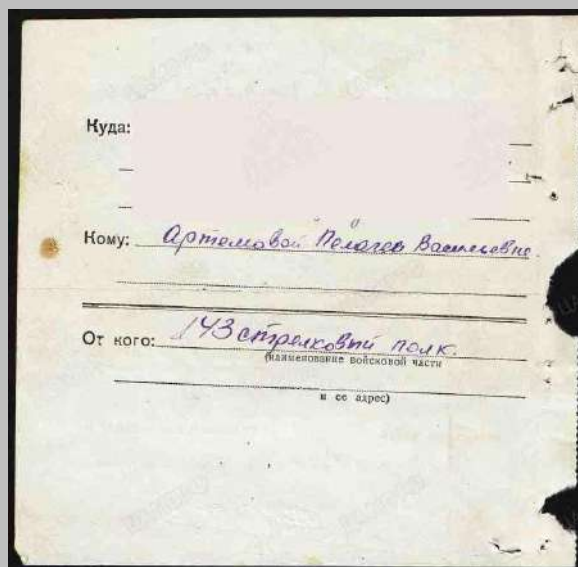 Куда:
Кому: Артемовой Пелагев Васильевне.
От кого: 143 стрелковый полк.
(наименование войсковой части
и ее адрес)